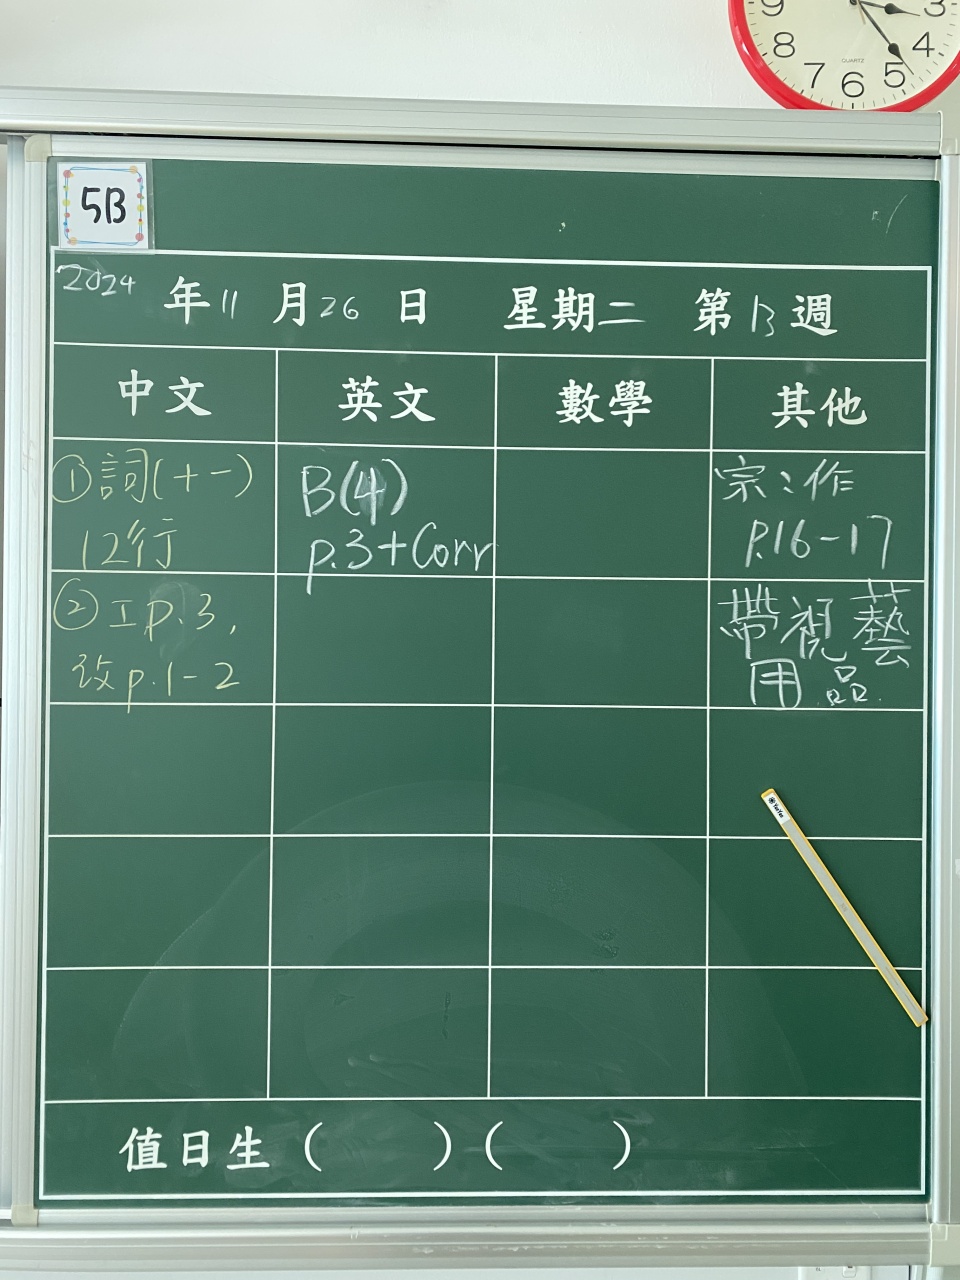 9 3
8 4
QUARTZ
7 6 5
5B
2024年11月26日 星期二 第13週
中文 英文 數學 其他
①詞(十一)
12行
B(4)
p.3+Corr
宗:作
P.16-17
②工p.3,
改p.1-2
帶視藝
用品.
值日生( )( )